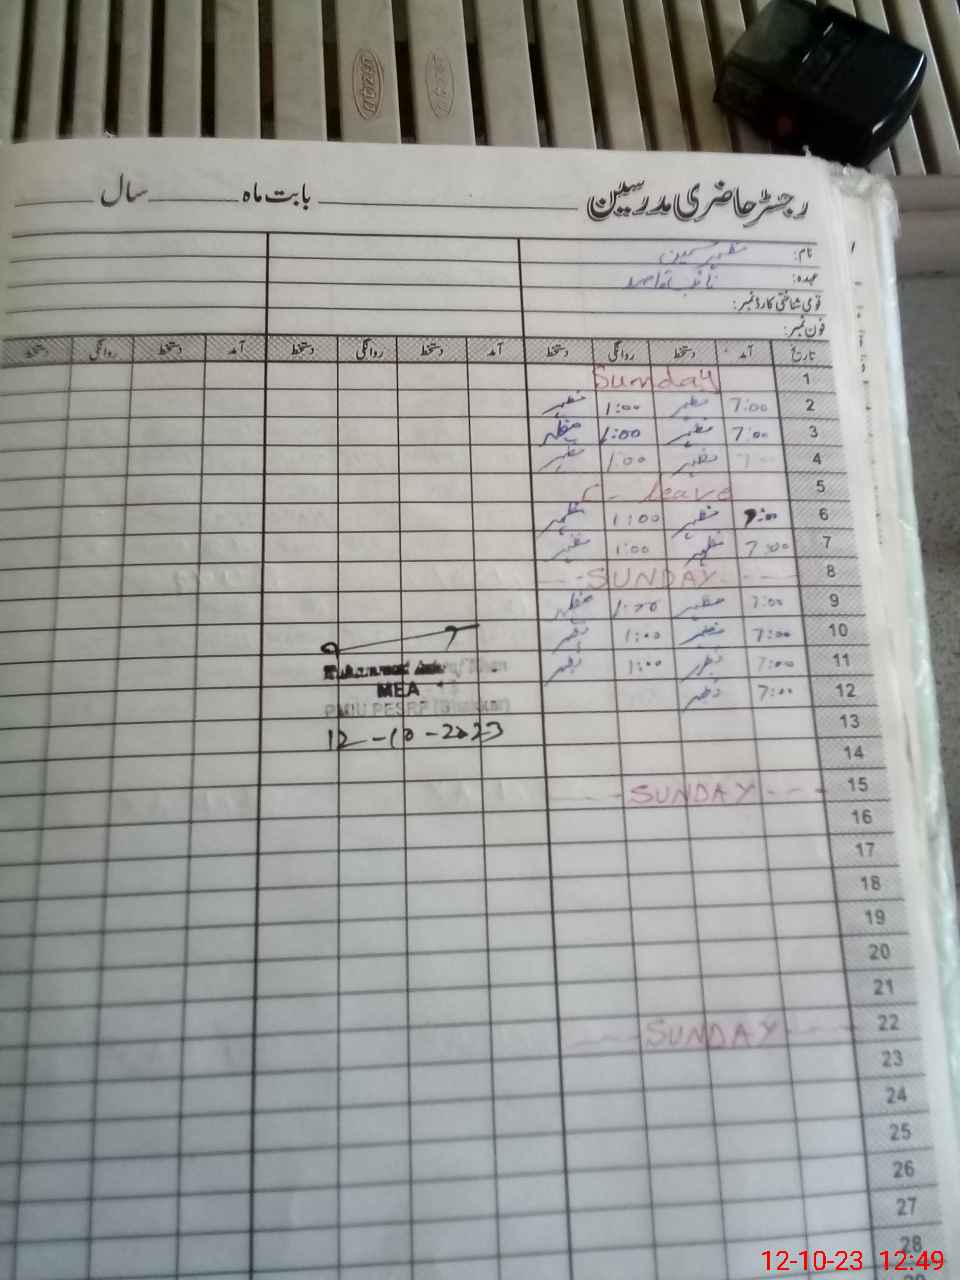 رجسٹر حاضری مدرسین ــــــ بابت ماہ ــــــ سال ــــــ
نام: مظہر حسین
عہدہ: نائب قاصد
قومی شناختی کارڈ نمبر:
فون نمبر:
تاریخ آمد دستخط روانگی دستخط آمد دستخط روانگی دستخط آمد دستخط روانگی دستخط
1 Sunday
2 7:00 مظہر 1:00 مظہر
3 7:00 مظہر 1:00 مظہر
4 7:00 مظہر 1:00 مظہر
5 C- leave
6 7:00 مظہر 1:00 مظہر
7 7:00 مظہر 1:00 مظہر
8 SUNDAY
9 7:00 مظہر 1:00 مظہر
10 7:00 مظہر 1:00 مظہر
11 7:00 مظہر 1:00 مظہر
12 7:00 مظہر
Muhammad Khan
MEA
PMIU PESRP (Bhakkar)
12-10-2023
13
14
15 SUNDAY
16
17
18
19
20
21
22 SUNDAY
23
24
25
26
27
28
12-10-23 12:49